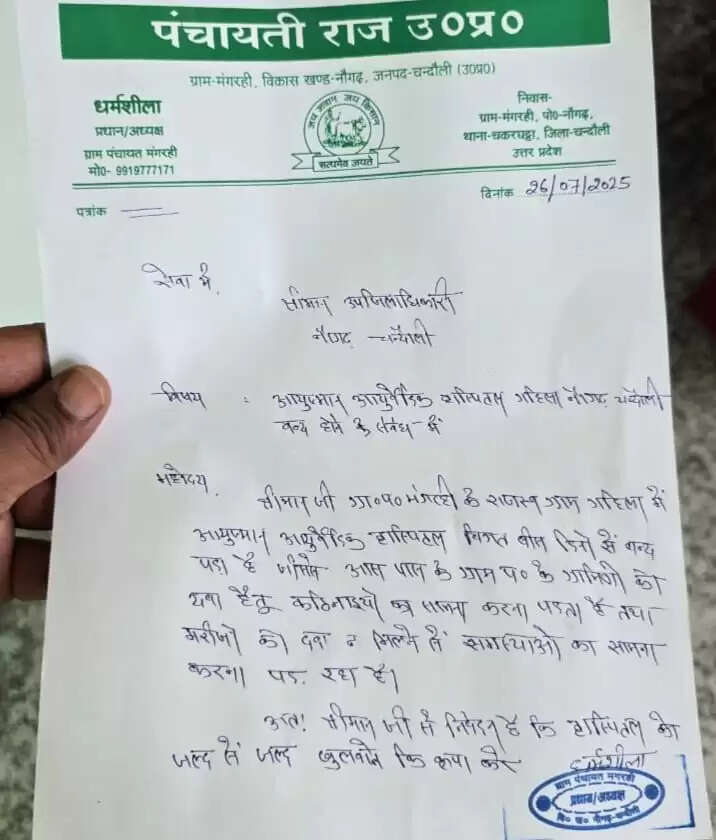 पंचायती राज उ०प्र०
ग्राम-मंगरही, विकास खण्ड-नौगढ़, जनपद-चन्दौली (उ0प्र0)
धर्मशीला
प्रधान/अध्यक्ष
ग्राम पंचायत मंगरही
मो0- 9919777171
जय जवान जय किसान
सत्यमेव जयते
निवास-
ग्राम-मंगरही, पो0-नौगढ़,
थाना-चकरघट्टा, जिला-चन्दौली
उत्तर प्रदेश
पत्रांक
दिनांक 26/07/2025
सेवा में,
श्रीमान उपजिलाधिकारी
नौगढ़ चन्दौली
विषय : आयुष्मान आयुर्वेदिक हास्पिटल गहिला नौगढ़ चन्दौली
बन्द होने के संबंध में
महोदय,
श्रीमान जी ग्रा०प० मंगरही के राजस्व ग्राम गहिला में
आयुष्मान आयुर्वेदिक हास्पिटल विगत बीस दिनों से बन्द
पड़ा है जीससे आस पास के ग्राम प० के ग्रामिणों को
दवा हेतु कठिनाइयों का सामना करना पड़ता है तथा
मरीजों को दवा न मिलने से समस्याओं का सामना
करना पड़ रहा है।
अतः श्रीमान जी से निवेदन है कि हास्पिटल को
जल्द से जल्द खुलवाने कि कृपा करे
धर्मशीला
ग्राम पंचायत मंगरही
प्रधान/अध्यक्ष
वि० ख० नौगढ़-चन्दौली